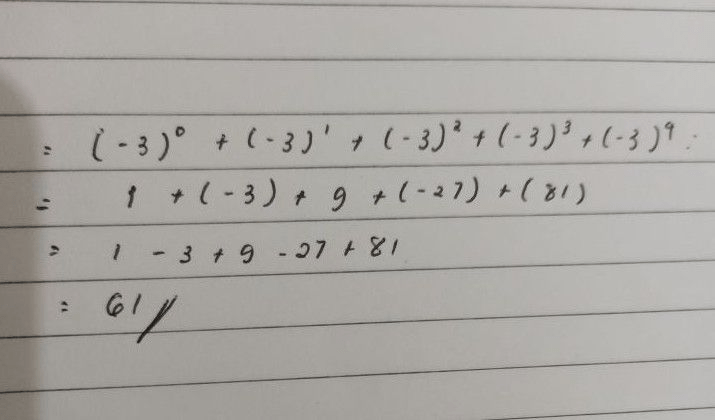 = (-3)⁰ + (-3)¹ + (-3)² + (-3)³ + (-3)⁴
= 1 + (-3) + 9 + (-27) + (81)
= 1 - 3 + 9 - 27 + 81
= 61 //